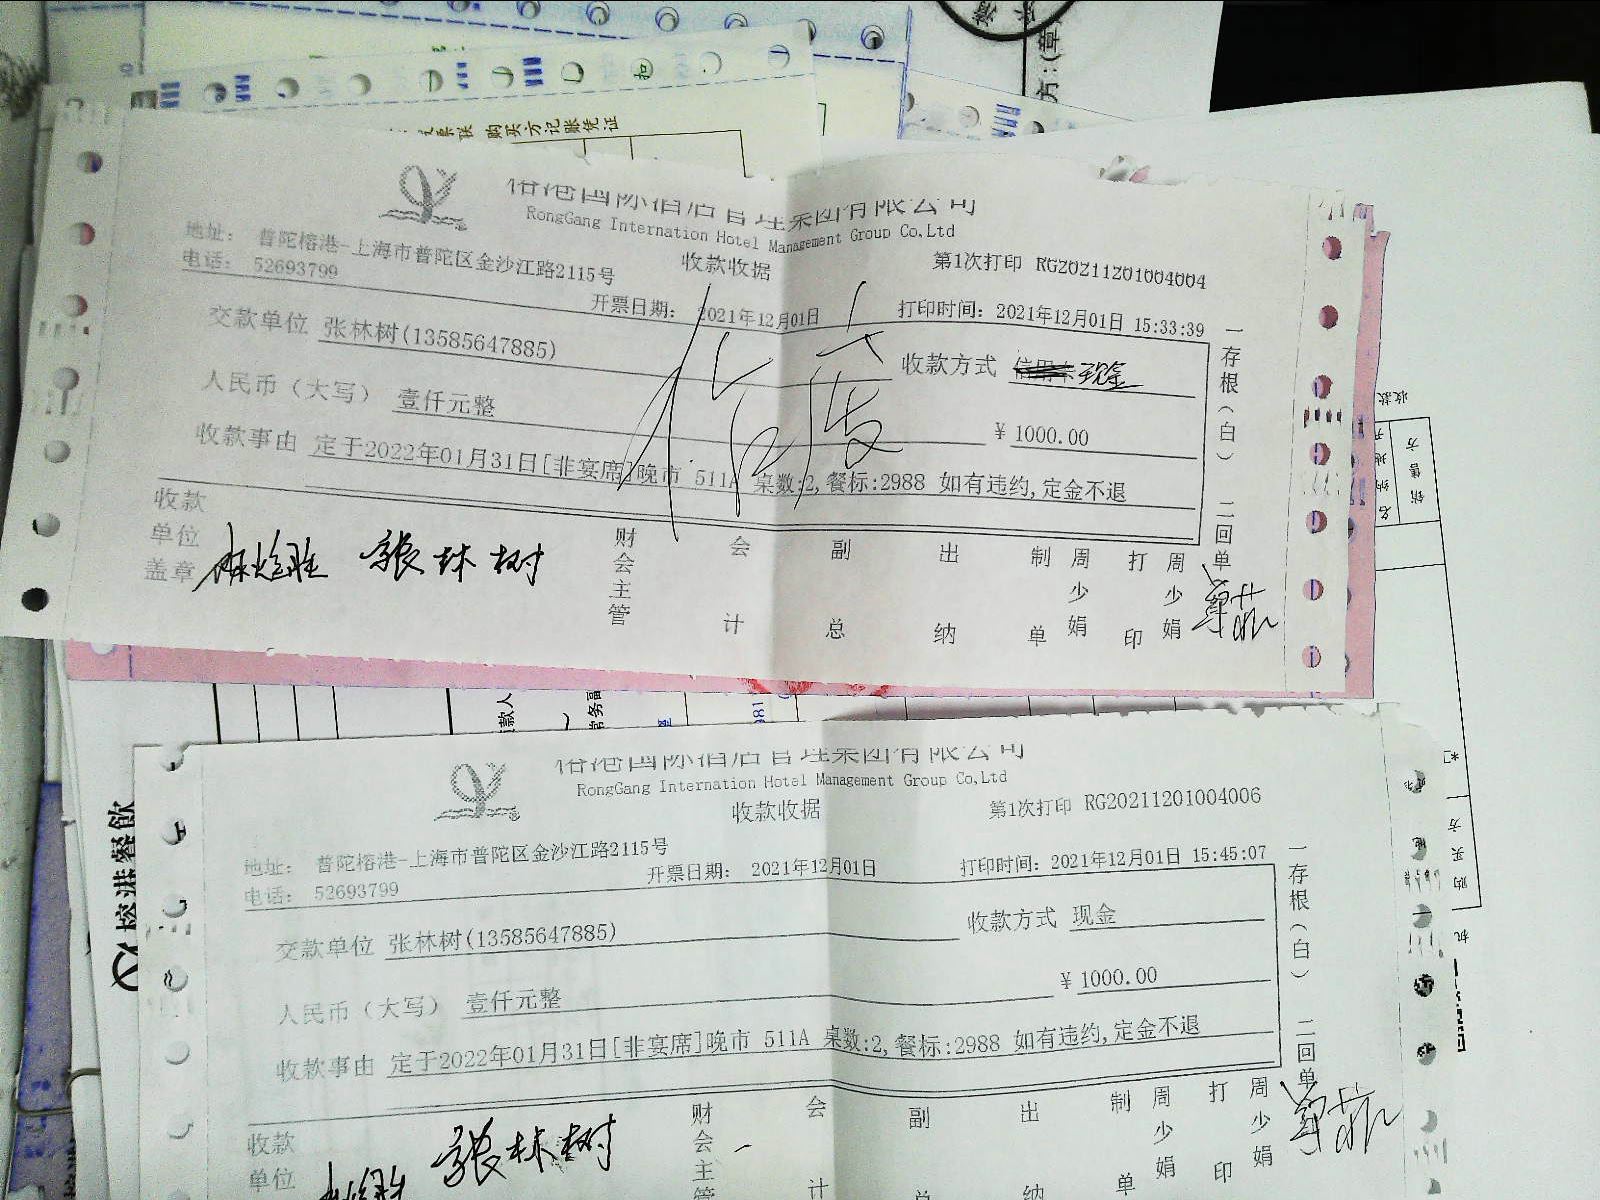 发票联 购买方记账凭证
方:(章)
榕港国际酒店管理集团有限公司
RongGang International Hotel Management Group Co,Ltd
地址： 普陀榕港-上海市普陀区金沙江路2115号
收款收据
第1次打印 RG20211201004004
电话： 52693799
开票日期： 2021年12月01日
打印时间：2021年12月01日 15:33:39
交款单位 张林树(13585647885)
收款方式 信用卡 现金
人民币（大写） 壹仟元整
¥ 1000.00
收款事由 定于2022年01月31日[非宴席]晚市 511A 桌数:2,餐标:2988 如有违约,定金不退
作废
一存根(白) 二回单
收款单位盖章
张林树
财会主管 会计 副总 出纳 制单 周少娟 打印 周少娟
收款
销售方
购买方
榕港餐飲
榕港国际酒店管理集团有限公司
RongGang International Hotel Management Group Co,Ltd
收款收据
第1次打印 RG20211201004006
地址： 普陀榕港-上海市普陀区金沙江路2115号
电话： 52693799
开票日期： 2021年12月01日
打印时间：2021年12月01日 15:45:07
交款单位 张林树(13585647885)
收款方式 现金
人民币（大写） 壹仟元整
¥ 1000.00
收款事由 定于2022年01月31日[非宴席]晚市 511A 桌数:2,餐标:2988 如有违约,定金不退
一存根(白) 二回单
收款单位
张林树
财会主管 会计 副总 出纳 制单 周少娟 打印 周少娟